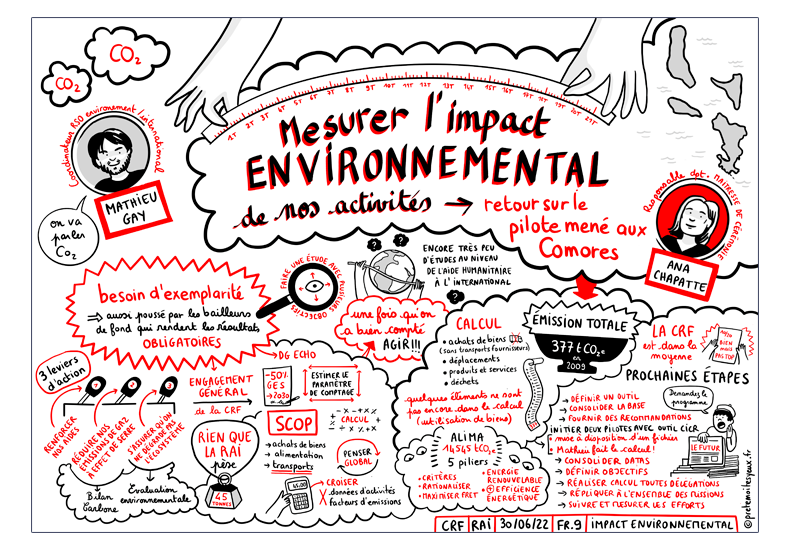 CO2
CO2
1T 2T 3T 4T 5T 6T 7T 8T 9T 10T 11T 12T 13T 14T 15T 16T 17T 18T 19T 20T 21T
Mesurer l'impact
ENVIRONNEMENTAL
de nos activités → retour sur le
pilote mené aux
Comores
Coordinateur RSO environement/international
MATHIEU
GAY
on va
parler
CO2
MAITRESSE DE CÉRÉMONIE
ANA
CHAPATTE
besoin d'exemplarité
⇒ aussi poussé par les bailleurs
de fond qui rendent les résultats
OBLIGATOIRES
FAIRE UNE ÉTUDE AVEC PLUSIEURS OBJECTIFS
? ?
ENCORE TRÈS PEU
D'ÉTUDES AU NIVEAU
DE L'AIDE HUMANITAIRE
À L'INTERNATIONAL
?
une fois qu'on
a bien compté
AGIR!!!
3 leviers
d'action
1 2 3
RENFORCER
NOS AIDES
RÉDUIRE NOS
ÉMISSIONS DE GAZ
À EFFET DE SERRE
S'ASSURER QU'ON
NE DÉGRADE PAS
L'ÉCOSYSTÈME
Bilan
Carbone
Évaluation
environnementale
ENGAGEMENT
GÉNÉRAL
de la CRF
→ DG ECHO
-50%
GES
→2030
ESTIMER LE
PARAMÈTRE
DE COMPTAGE
RIEN QUE
LA RAÏ
pèse
45
TONNES
SCOP
→ achats de biens
→ alimentation
→ transports
CALCUL
PENSER
GLOBAL
CROISER
données d'activités
facteurs d'émissions
CALCUL
• achats de biens
(sans transports fournisseurs)
• déplacements
• produits et services
• déchets
quelques éléments ne sont
pas encore dans le calcul
(utilisation de biens)
ALIMA
14545 tCO2e
5 piliers
• CRITÈRES
• RATIONALISER
• MAXIMISER FRET
• ENERGIE
RENOUVELABLE
+ EFFICIENCE
ÉNERGÉTIQUE
ÉMISSION TOTALE
377 tCO2e
en
2009
LA CRF
est dans la
moyenne
BIEN
MAIS
PAS TOP
PROCHAINES ÉTAPES
→ DÉFINIR UN OUTIL
→ CONSOLIDER LA BASE
→ FOURNIR DES RECOMMANDATIONS
Demandez le
programme
LE FUTUR
INITIER DEUX PILOTES AVEC OUTIL CICR
• mise à disposition d'un fichier
• Mathieu fait le calcul!
→ CONSOLIDER DATAS
→ DÉFINIR OBJECTIFS
→ RÉALISER CALCUL TOUTES DÉLÉGATIONS
→ RÉPLIQUER À L'ENSEMBLE DES MISSIONS
→ SUIVRE ET MESURER LES EFFORTS
CRF RAÏ 30/06/22 FR.9 IMPACT ENVIRONNEMENTAL
©pretemoitesyeux.fr